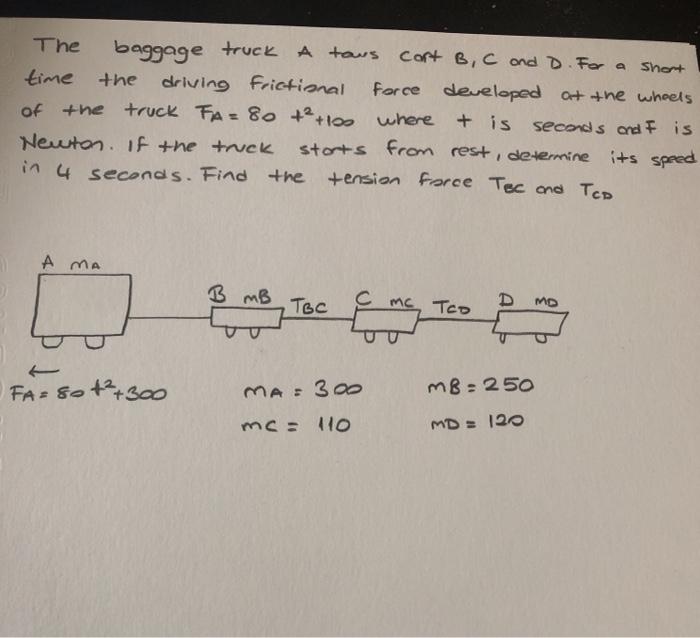 The baggage truck A tows cart B, C and D. For a short
time the driving frictional force developed at the wheels
of the truck FA = 80 t²+100 where t is seconds and F is
Newton. If the truck starts from rest, determine its speed
in 4 seconds. Find the tension force TBC and TCD
A mA
B mB TBC C mC TCD D mD
←
FA = 80 t²+300 mA = 300 mB = 250
mC = 110 mD = 120